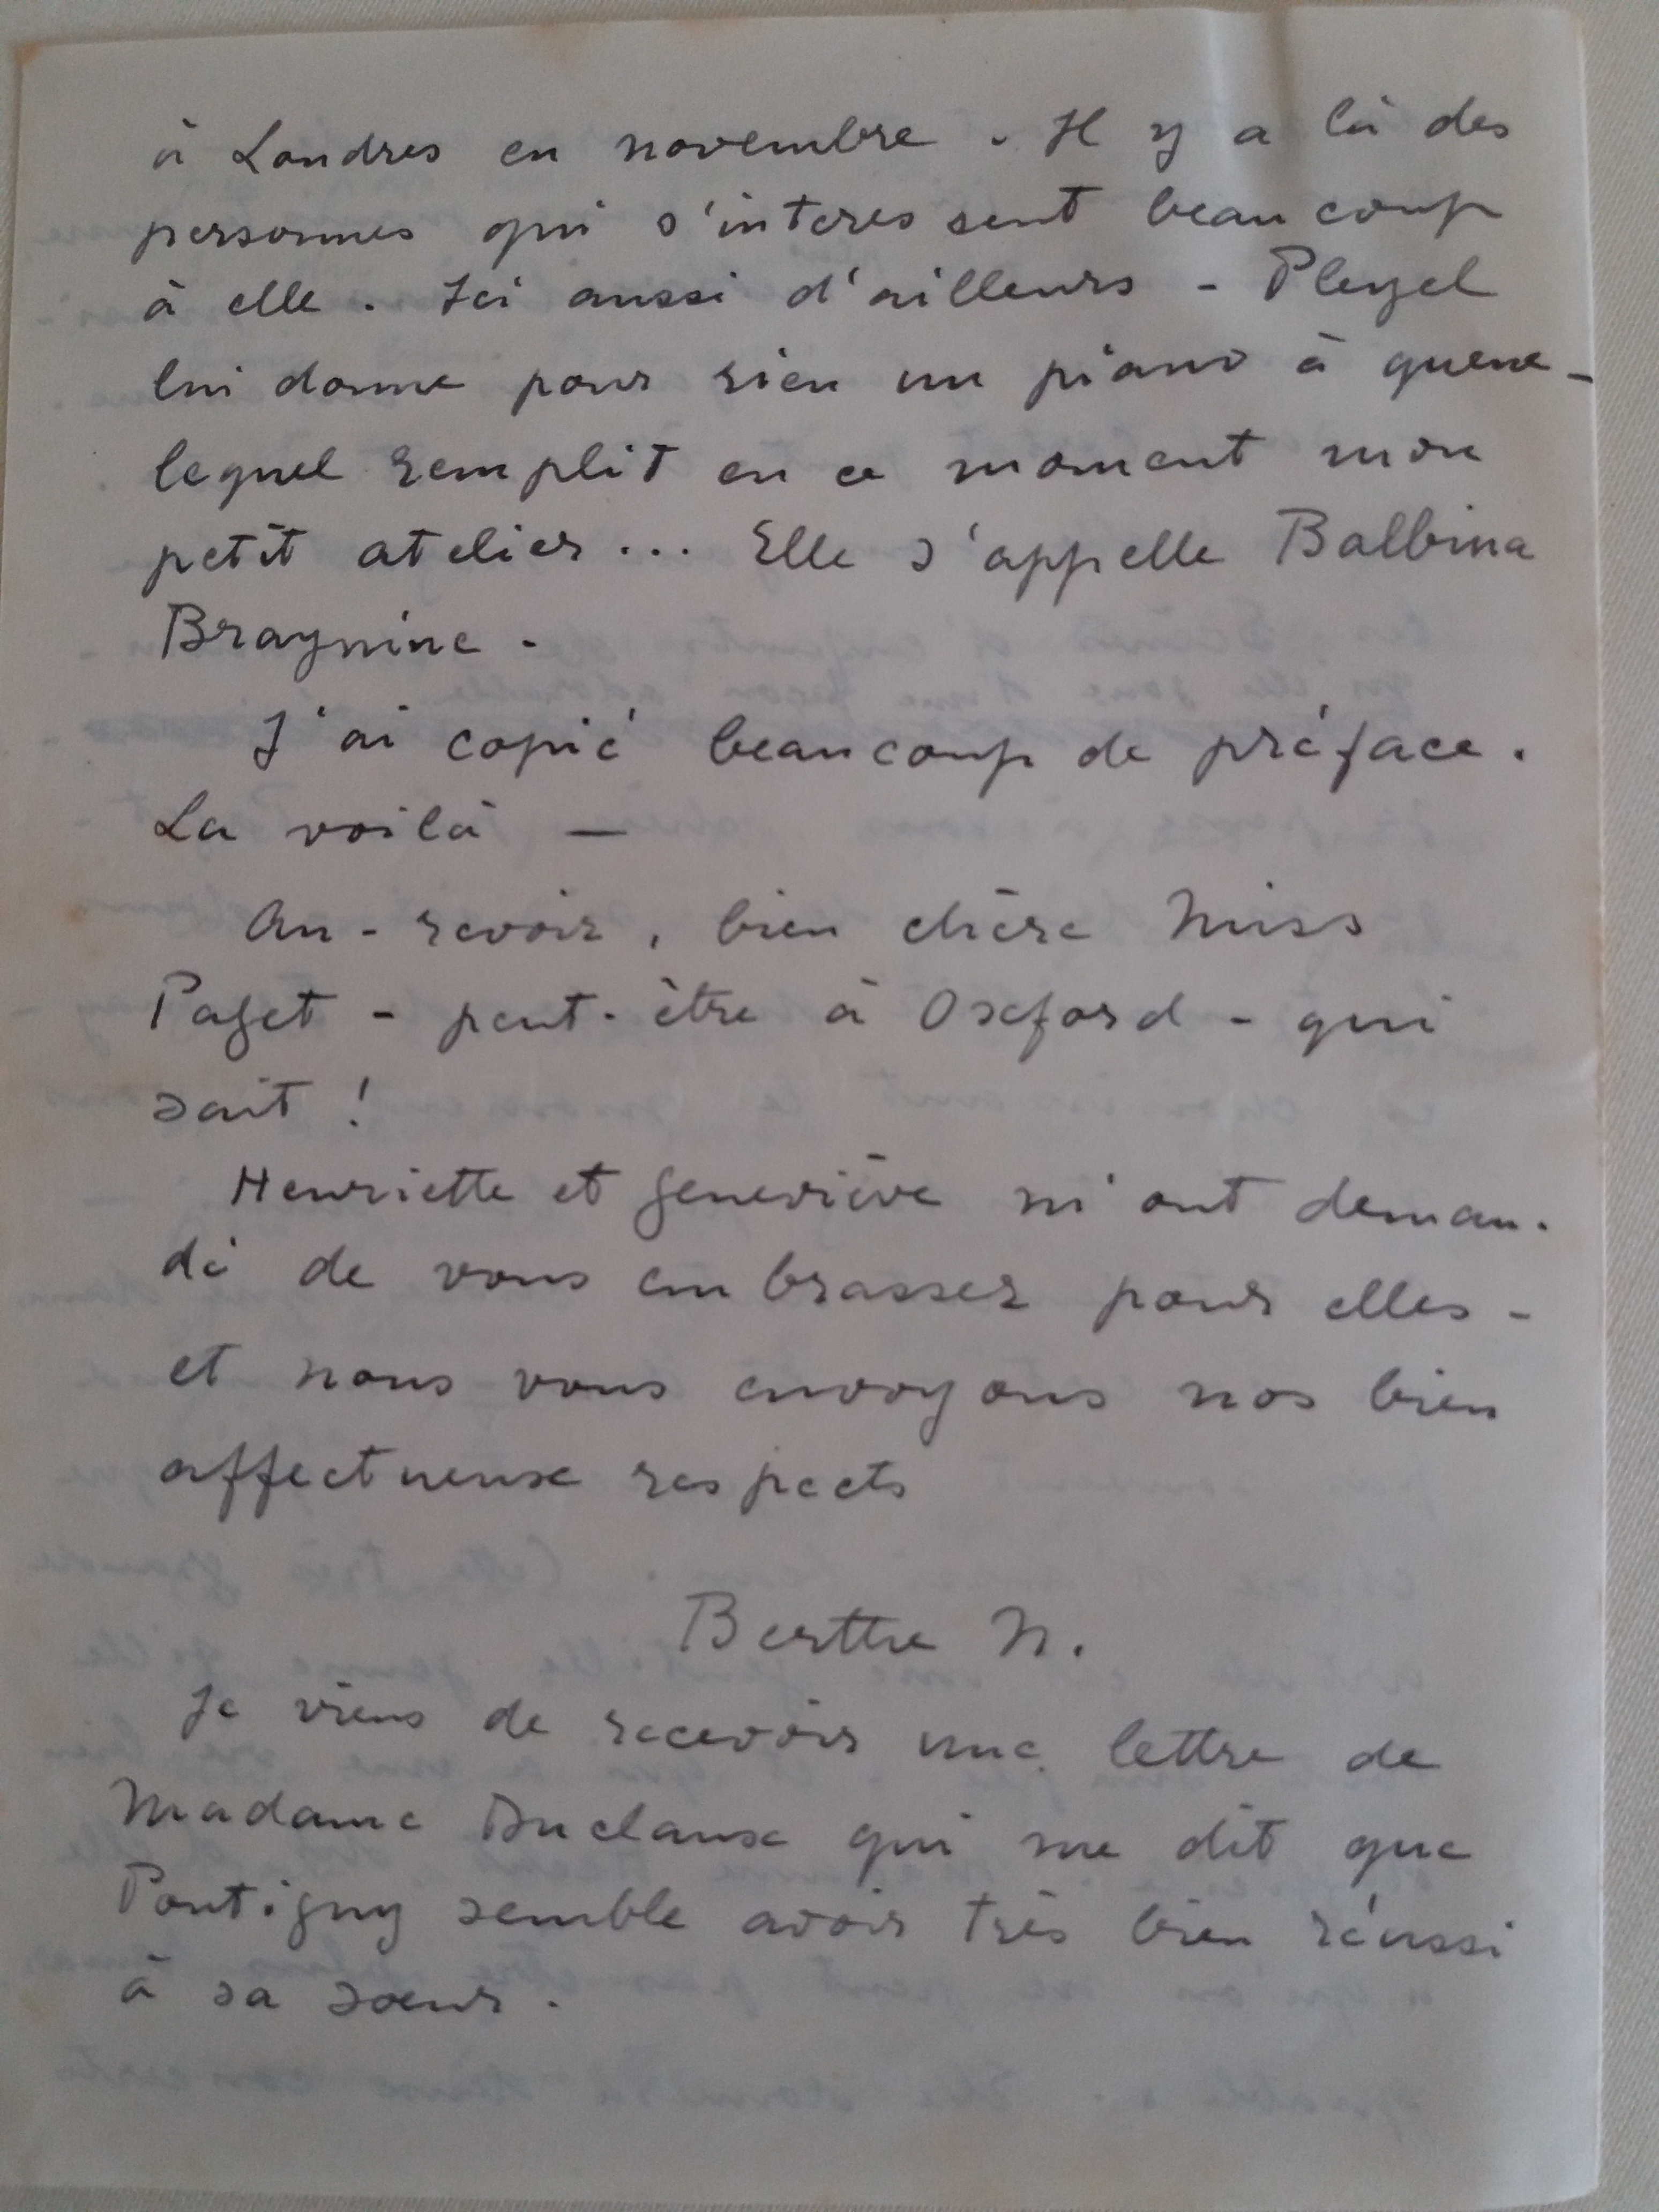 à Londres en novembre . Il y a là des
personnes qui s'interessent beaucoup
à elle . Ici aussi d'ailleurs - Pleyel
lui donne pour rien un piano à queue -
lequel remplit en ce moment mon
petit atelier ... Elle s'appelle Balbina
Braynine .
J'ai copié beaucoup de préface .
La voilà —
Au-revoir , bien chère Miss
Paget - peut-être à Oxford - qui
sait !
Henriette et Geneviève m'ont deman-
dé de vous embrasser pour elles -
et nous vous envoyons nos bien
affectueux respects
Berthe N.
Je viens de recevoir une lettre de
Madame Duclaux qui me dit que
Pontigny semble avoir très bien réussi
à sa sœur .